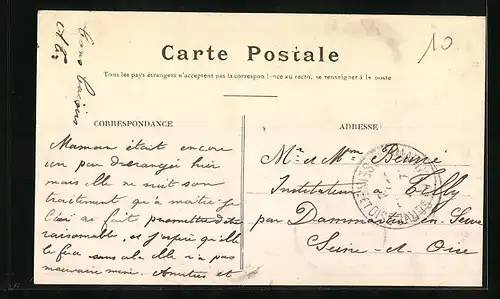 10
Carte Postale
Tous les pays étrangers n'acceptent pas la correspondance au recto, se renseigner à la poste
CORRESPONDANCE
ADRESSE
Maman était encore
un peu dérangée hier
mais elle ne suit son
traitement qu'à moitié.
fait promettre d'être
raisonnable, et j'espère qu'elle
le fera sans cela elle n'a pas
mauvaise mine. Amitiés et
bons baisers
Mr et Mme
Instituteur à Tilly
par Dammartin en Serve
Seine-et-Oise